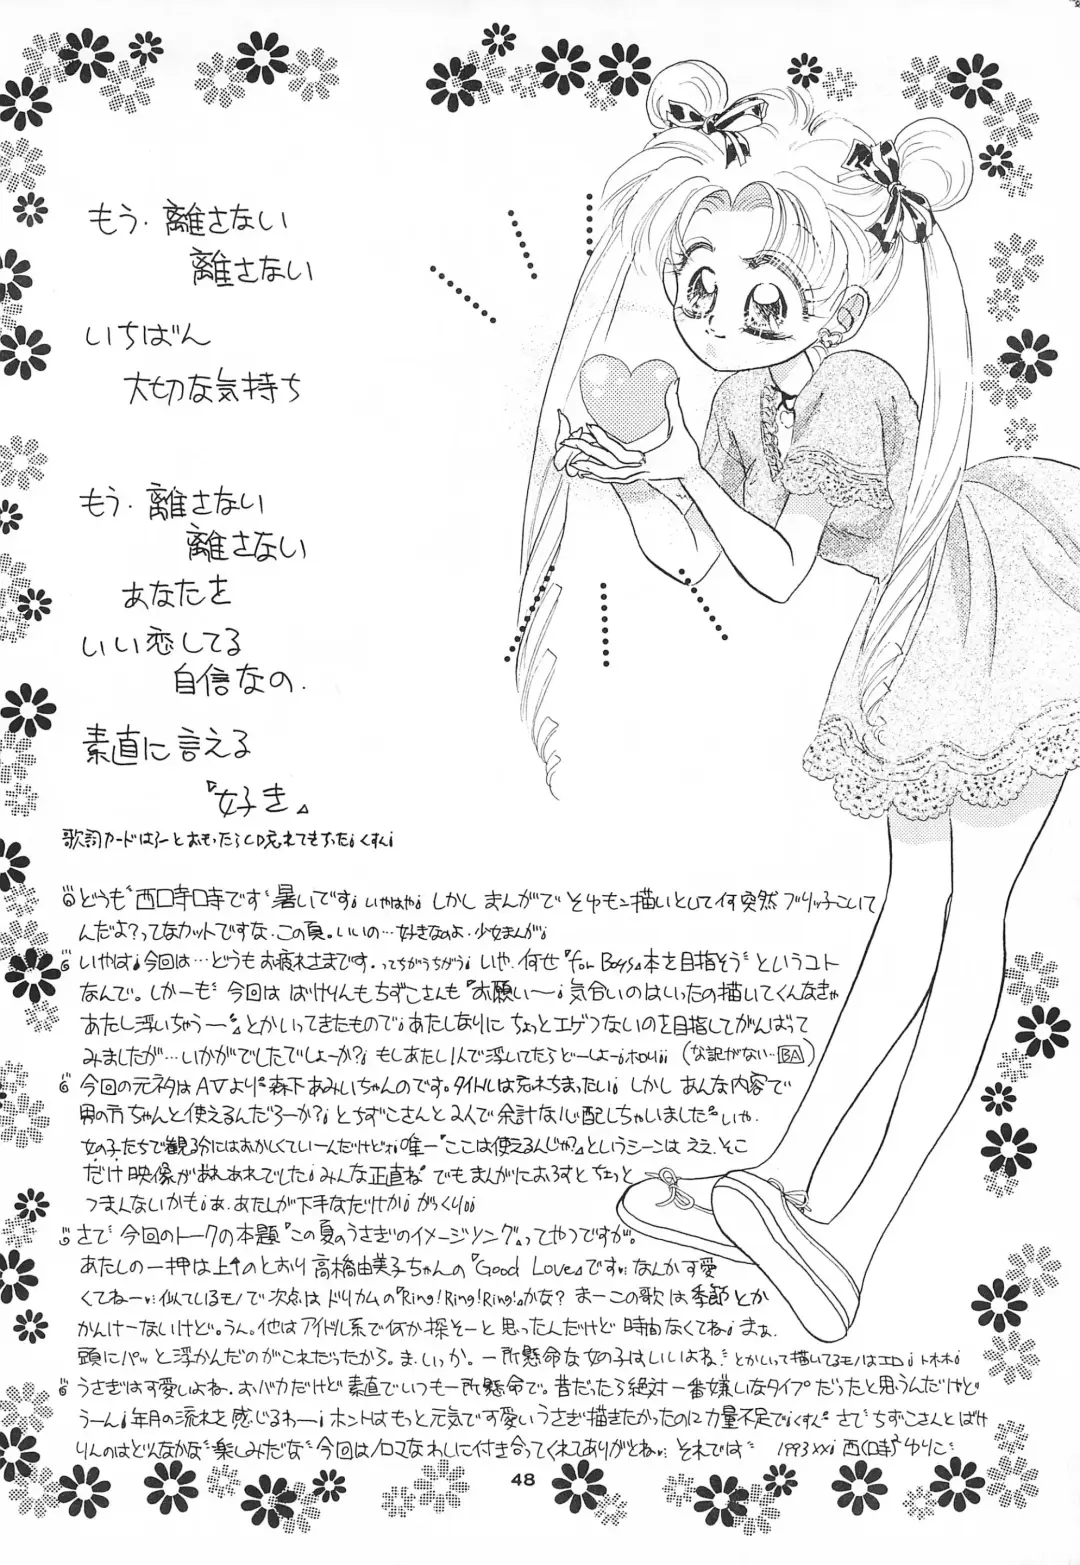 もう・離さない
離さない
いちばん
大切な気持ち
もう・離さない
離さない
あなたを
いい恋してる
自信なの.
素直に言える
『好き』
歌詞カードはろーとおもったらCD忘れてもちった¡くすん¡
どうも"西口寺口寺です"暑いです¡いやはや¡しかし まんがで
何突然ブリッ子こいて
んだよ?ってなカットですな.この頁。いいの…好きなのよ.少女まんが¡
いやは¡今回は…どうもお疲れさまです.ってちがうちがう¡いや.何せ『for Boys』本を目指そう"というコト
なんで。しかーも"今回は ばけりんもちずこさんも『お願い〜¡気合いのはいったの描いてくんなきゃ
あたし浮いちゃう〜』とかいってきたもので¡あたしなりに ちょっとエゲつないのを目指してがんばって
みましたが…いかがでしたでしょーか?¡もしあたし1人で浮いてたらどーしよー¡ (な訳がない…BA)
今回の元ネタはAVより"森下あみいちゃんのです。タイトルは忘れちまったい¡しかし あんな内容で
男の方ちゃんと使えるんだろーか?¡とちずこさんと2人で余計な心配しちゃいました"いや.
女の子たちで観る分にはおかしくていーんだけど¡唯一『ここは使えるんじゃ?』というシーンは ええ.そこ
だけ 映像があれあれでした¡みんな正直ね"でもまんがにおろすとちょっと
つまんないかも¡あ.あたしが下手なだけか¡がっくり¡¡
さて"今回のトークの本題『この夏のうさぎのイメージソング』ってやつですが。
あたしの一押は上のとおり 高橋由美子ちゃんの『Good Love』です…なんか可愛
くてねー…似ているモノで次点はドリカムの『Ring!Ring!Ring!』かな?まーこの歌は季節とか
かんけーないけど。うん。他はアイドル系で何か探そーと思ったんだけど 時間なくてね¡まぁ.
頭にパッと浮かんだのがこれだったから。ま.いっか。一所懸命な女の子はいいよね.とかいって描いてるモノはエロ¡トホホ¡
うさぎは可愛いよね.おバカだけど素直でいつも一所懸命で。昔だったら絶対一番嫌いなタイプだったと思うんだけど
うーん¡年月の流れを感じるわー¡ホントはもっと元気で可愛いうさぎ描きたかったのに力量不足で¡くすん"さて"ちずこさんとばけ
りんのはどんなかな"楽しみだな"今回はノロマなわしに付き合ってくれてありがとね…それでは"1993xx¡ ゆりこ
48